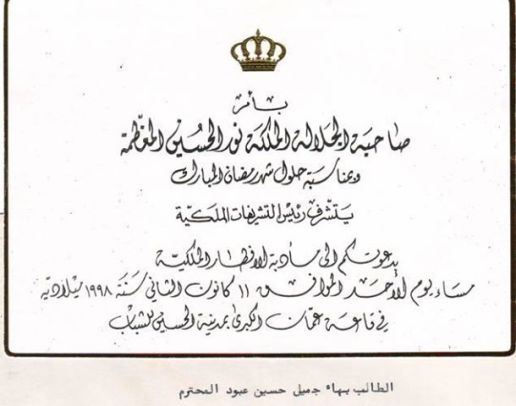 بأمر
صاحبة الجلالة الملكة نور الحسين المعظمة
وبمناسبة حلول شهر رمضان المبارك
يتشرف رئيس التشريفات الملكية
بدعوتكم الى مأدبة الافطار الملكية
مساء يوم الأحد الموافق ١١ كانون الثاني سنة ١٩٩٨ ميلادية
في قاعة عمّان الكبرى بمدينة الحسين للشباب
الطالب بهاء جميل حسين عبود المحترم